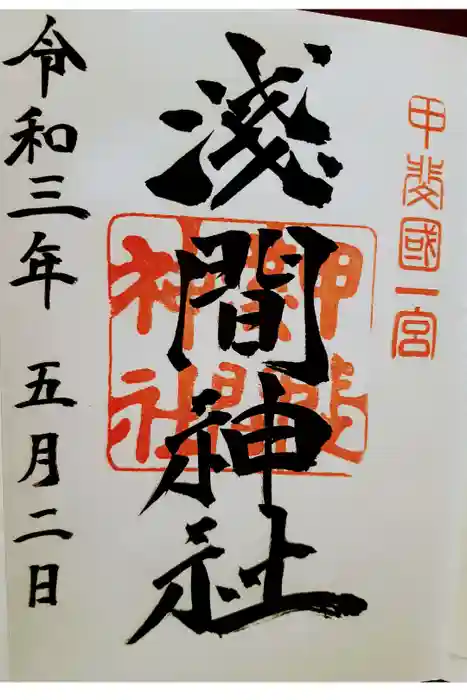 甲斐國一宮
淺間神社
令和三年 五月二日